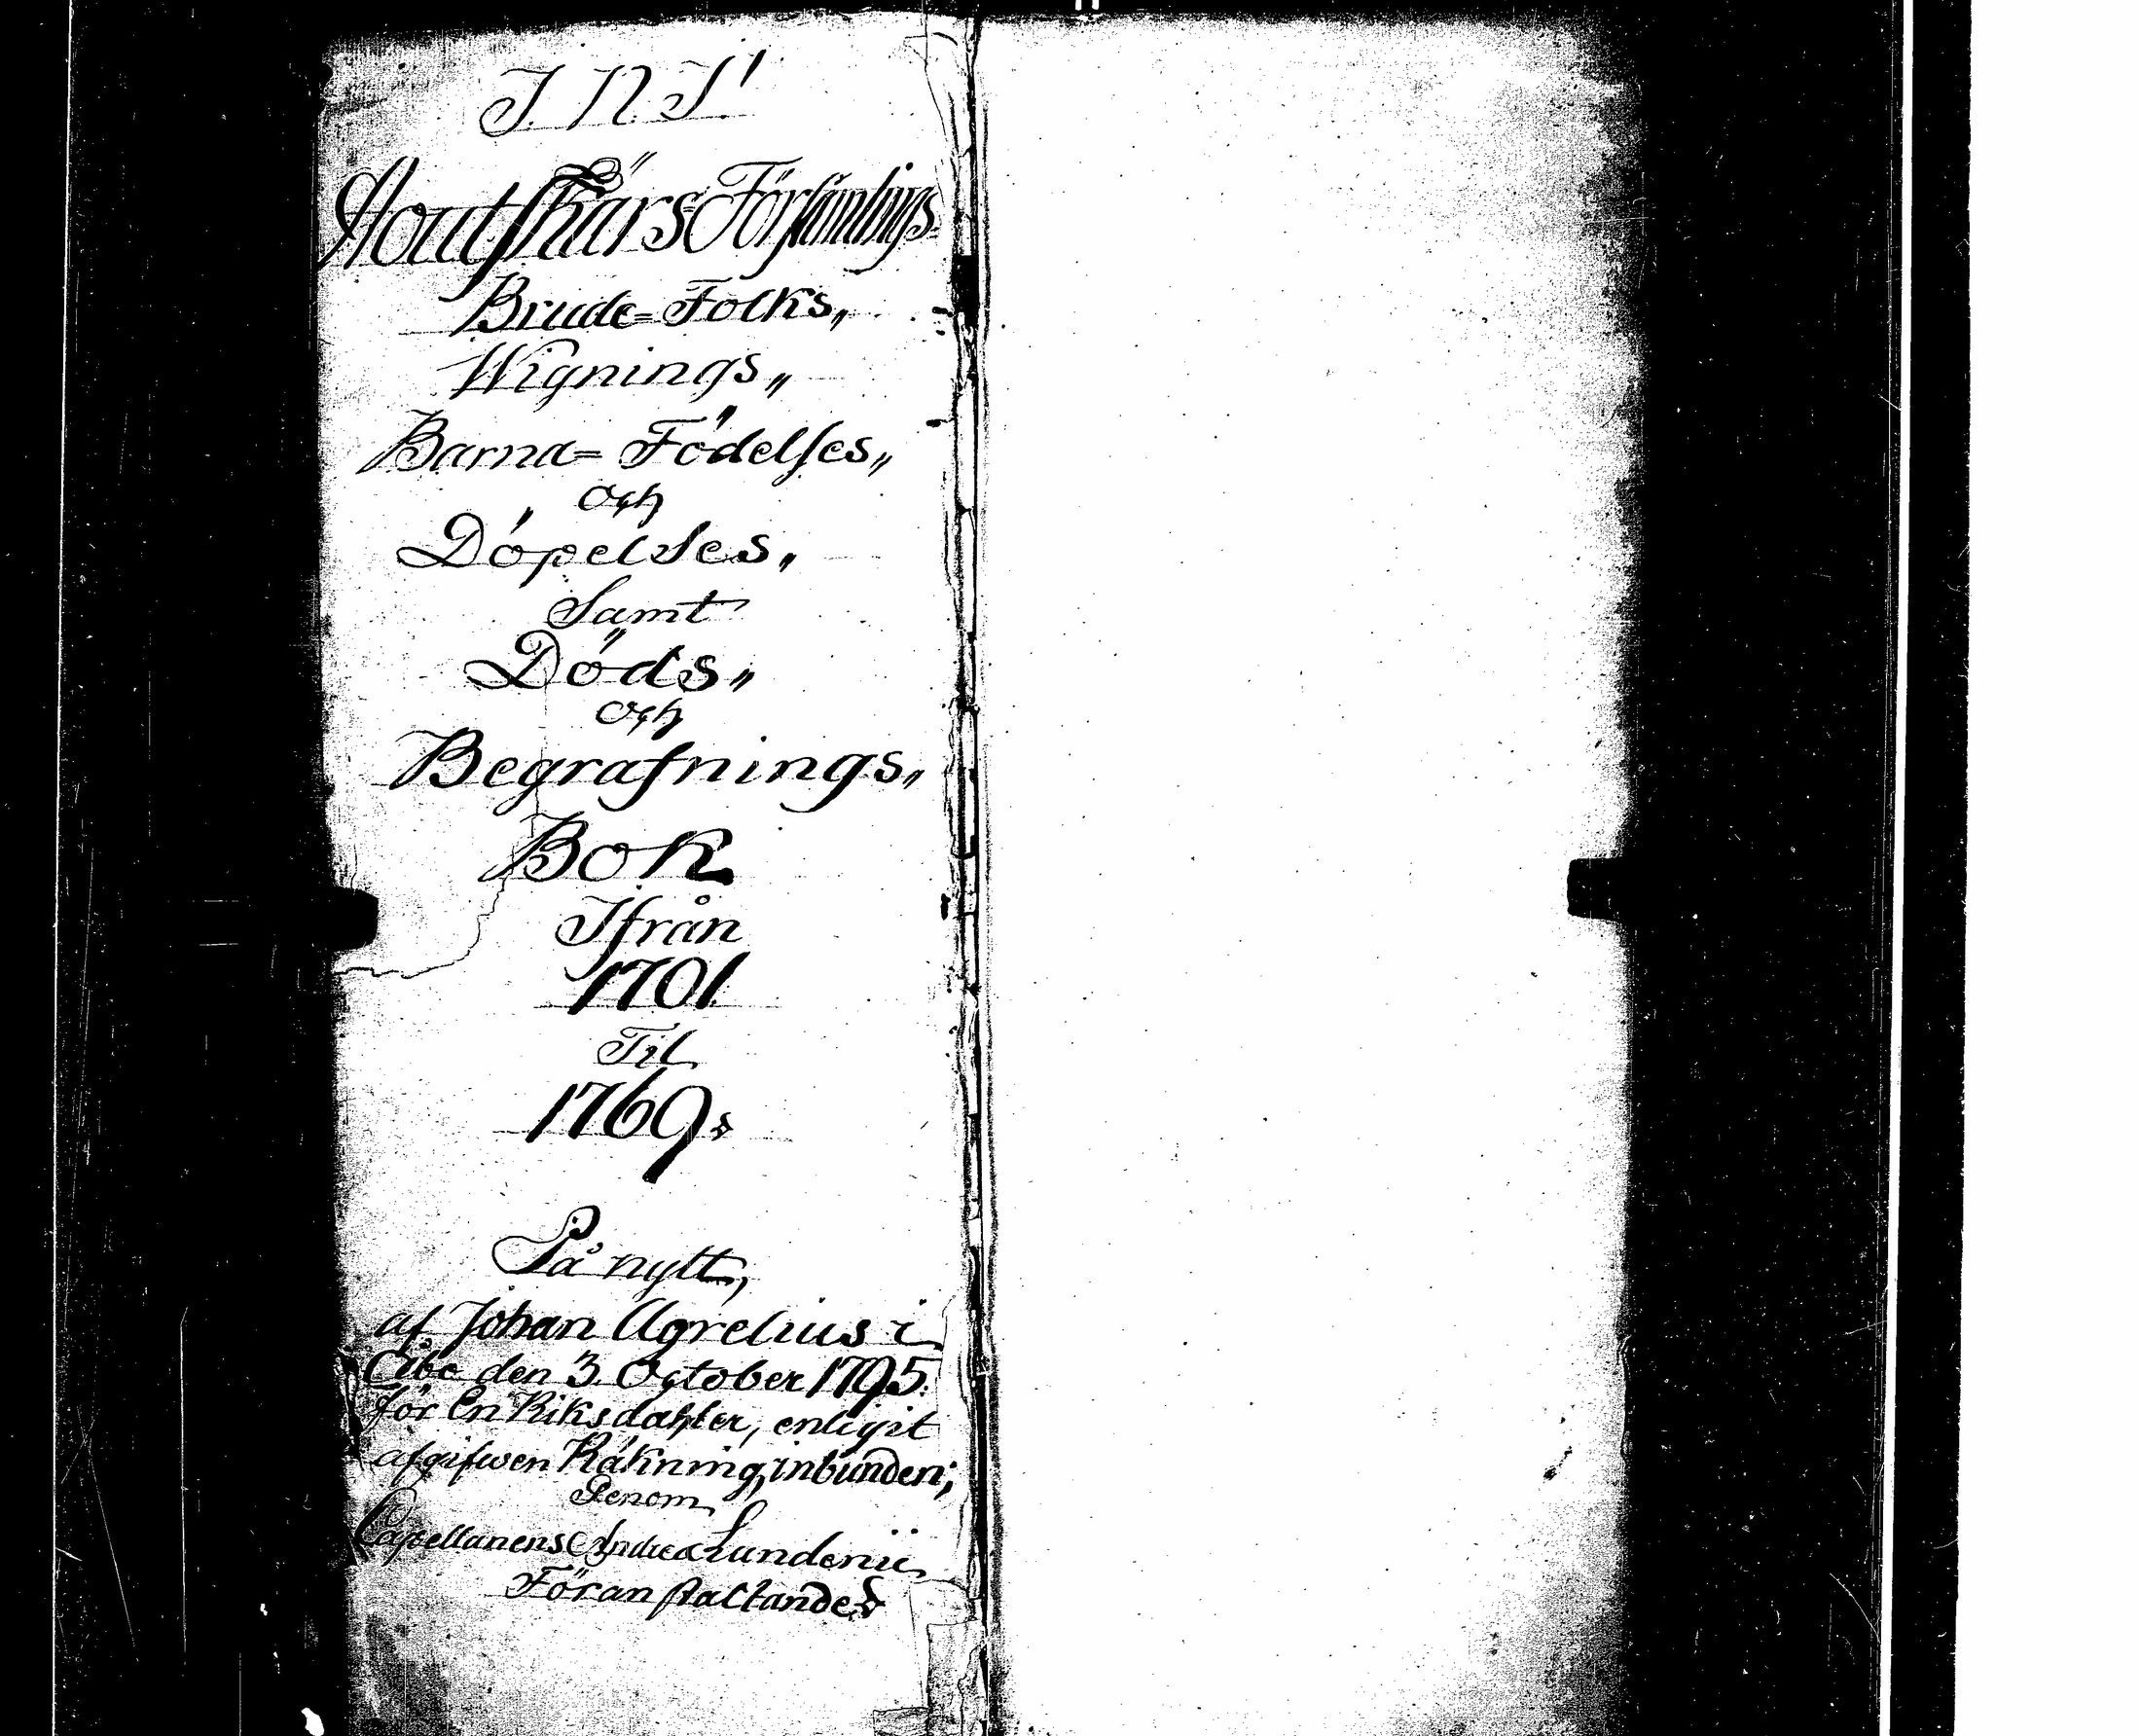 J. N. J!
Houtskärs Församlings-
Brude= Folks„
Wignings„
Barna= Födelses„
och
Döpelses„
Samt
Döds„
och
Begrafnings„
Bok
Ifrån
1701.
Til
1769.
På nytt,
af Johan Agrelius i
Åbo den 3. October 1795.
för En Riksdahler, enligit
afgifwen Räkning, inbunden;
Genom
Capellanens Andreæ Lundenii
Föranstaltande.